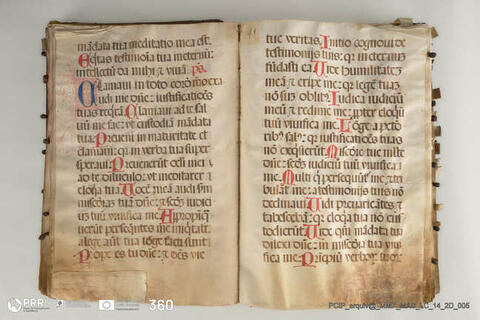 mādata tua meditatio mea est.
Eqtas testimōia tua ī eternū:
intellectū da mihi et vivā. ps.
Clamavi in toto corde meo ex
audi me dñe: iustificatiōes
tuas reqrā. Clamavi ad te sal
vū me fac: vt custodiā mādata
tua. Preveni in maturitate et
clamavi: qr in verba tua super
speravi. Prevenerūt oculi mei
ad te diluculo: vt meditarer
eloqa tua. Vocē meā audi sm
miaz tuā dñe: et sm iudiciū
tuū vivifica me. Appropiq
verūt persequētes me iniqtati:
a lege autē tua lōge facti sunt.
Prope es tu dñe: et oēs vie
tue veritas. Initio cognovi de
testimoniis tuis: qr in eternū
fūdasti ea. Vide humilitatē
meā et eripe me: qr legē tuā
nō sum oblitus. Iudica iudiciū
meū et redime me: propter eloqiū
tuū vivifica me. Lōge a pctō
ribus salus: qr iustificatiōes tuas
nō exqsierūt. Mie tue mlte
dñe: sm iudiciū tuū vivifica
me. Multi qui persequūtur me et tri
bulāt me: a testimoniis tuis nō
declinavi. Vidi prevaricātes et
tabescebā: qr eloqa tua nō cus
todierūt. Vide qm mādata tua
dilexi dñe: in mia tua vivi
fica me. Prīcipiū verborum tuorum
PRR
360
PCIP_arquivo_MMF_MAG_LC_14_2D_005